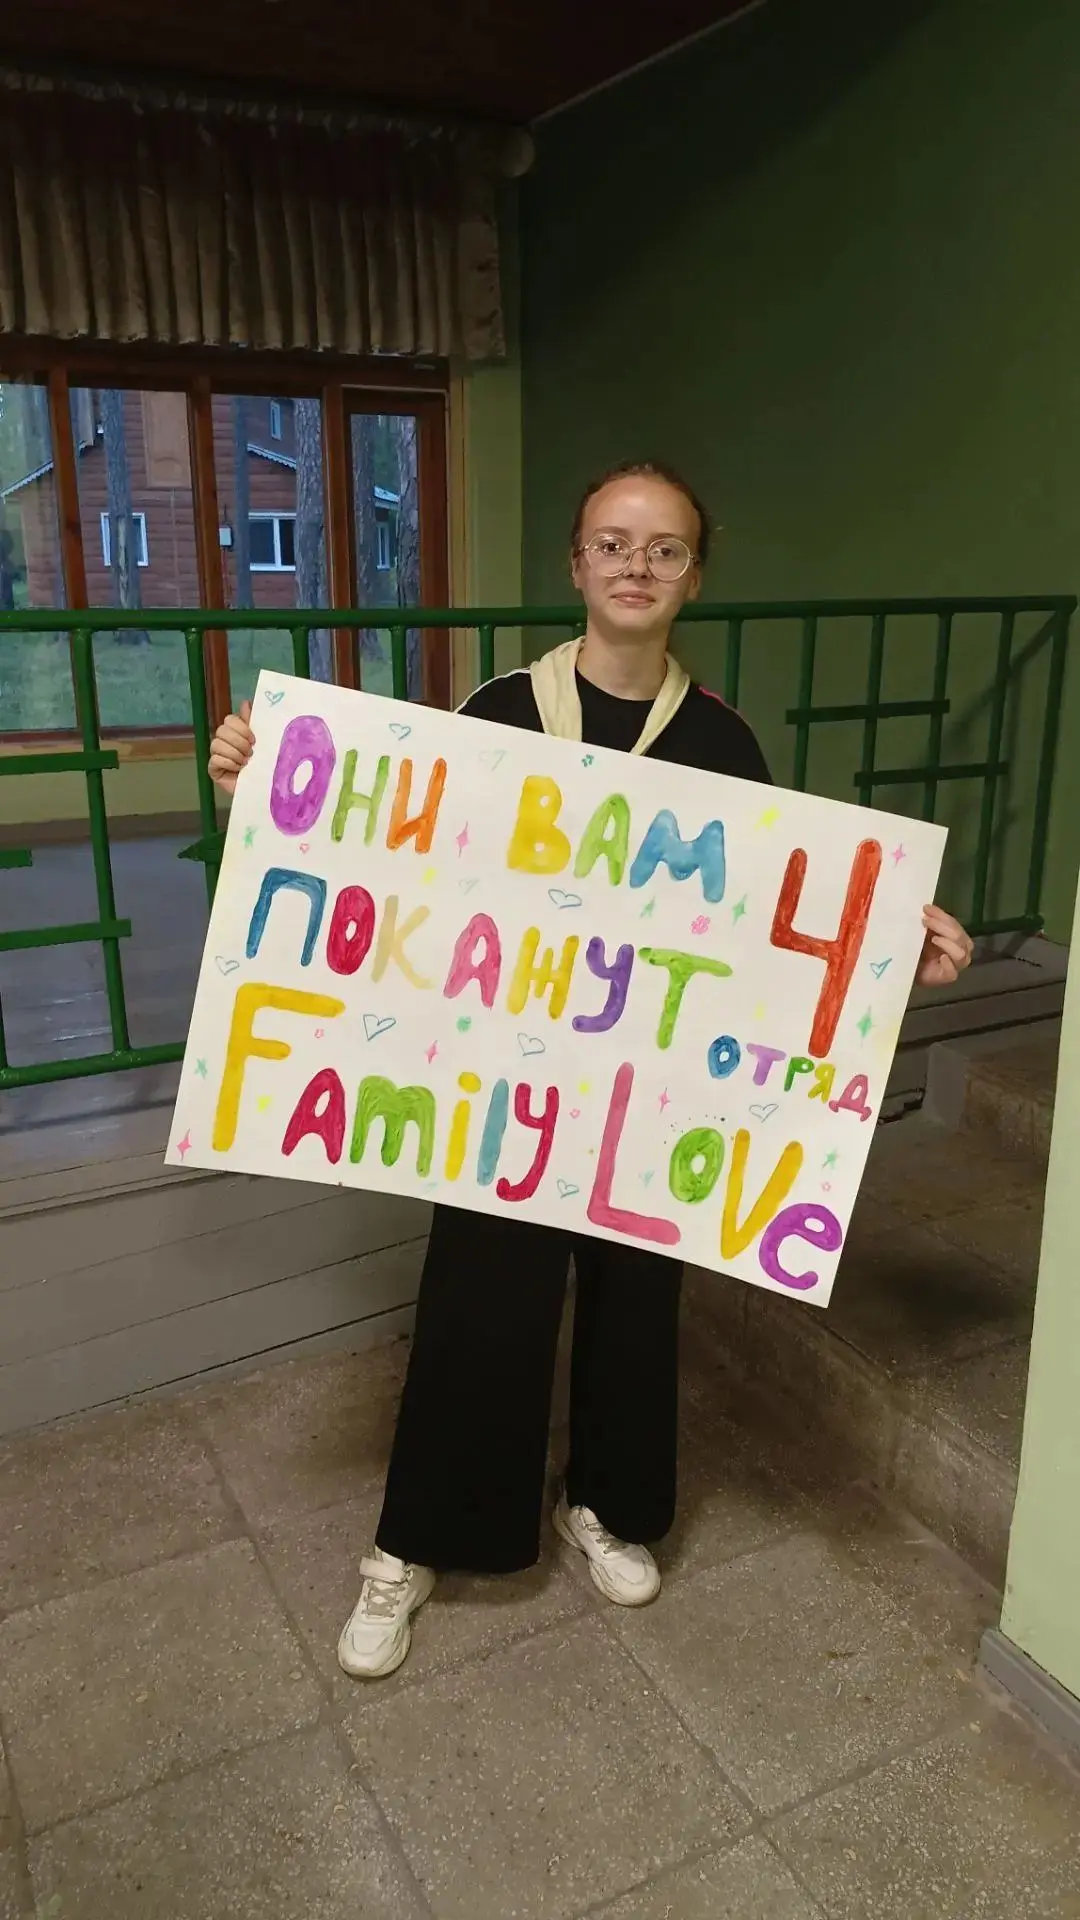 Они ВАМ
ПОКАЖУТ
4
отряд
Family Love